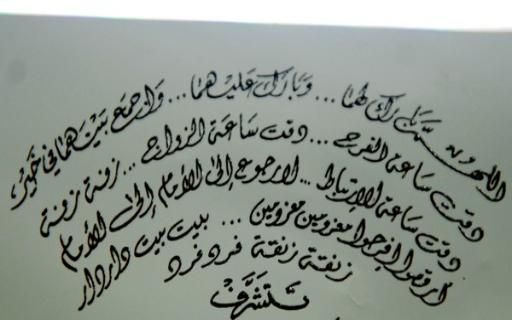 اللهمّ بارك لهما ... وبارك عليهما ... واجمع بينهما في خير
دقت ساعة الفرح ... دقت ساعة الزواج ... زفنة زفنة
دقت ساعة الارتباط ... لا رجوع إلى الأمام إلى الأمام
ارقصوا افرحوا معزومين معزومين ... بيت بيت دار دار
زنقة زنقة فرد فرد
تتشرّف